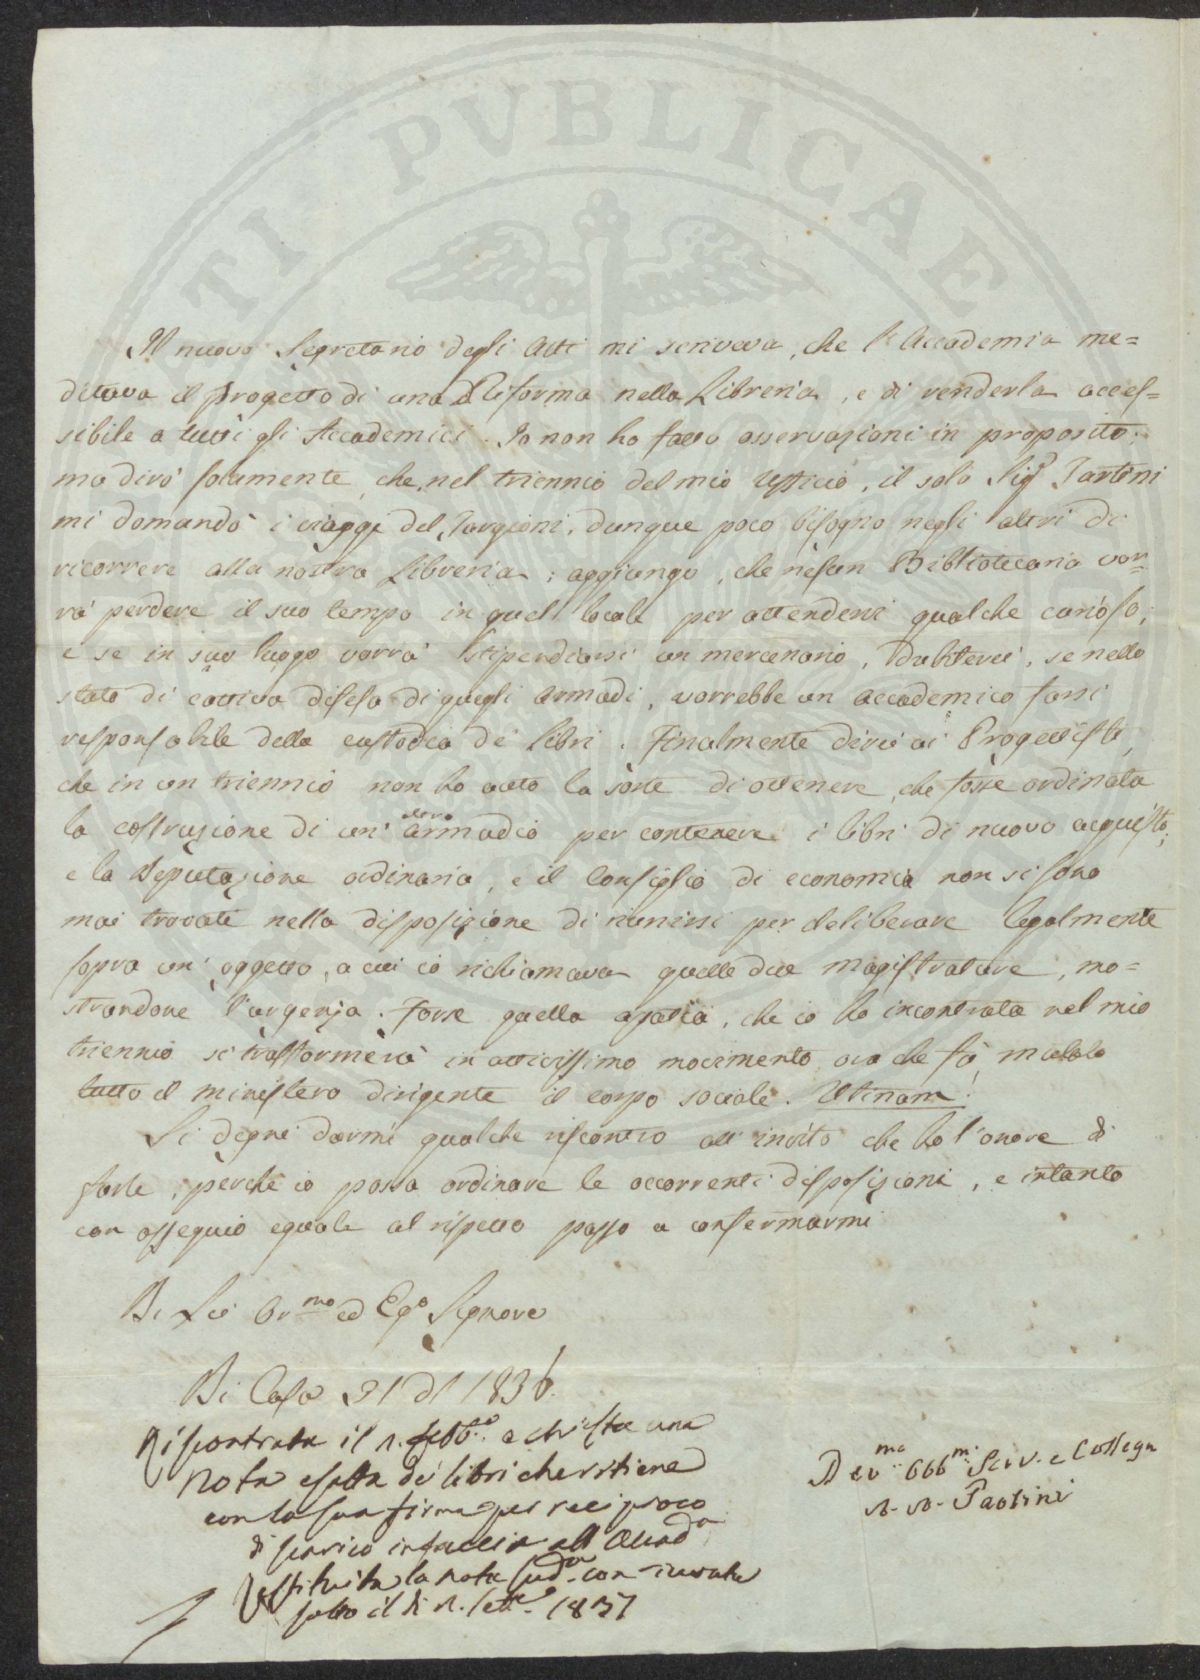 Il nuovo Segretario degli Atti mi scriveva, che l'Accademia me=
ditava il progetto di una Riforma nella Libreria, e di renderla acces=
sibile a tutti gli Accademici. Io non ho fatto osservazioni in proposito;
ma dirò solamente, che nel triennio del mio Uffizio, il solo Sigr Tartini
mi domandò i viaggi del Targioni, dunque poco bisogno negli altri di
ricorrere alla nostra Libreria; aggiungo, che nessun Bibliotecario vor=
rà perdere il suo tempo in quel locale per attendervi qualche curioso,
e se in suo luogo vorrà stipendiarsi un mercenario, dubiterei, se nello
stato di cattiva difesa di quegli armadi, vorrebbe un accademico farsi
responsabile della custodia de' libri. Finalmente direi ai Progettisti,
che in un triennio non ho avuto la sorte di ottenere, che fosse ordinata
la costruzione di un' altro armadio per contenere i libri di nuovo acquisto;
e la Deputazione ordinaria, e il Consiglio di economia non si sono
mai trovati nella disposizione di riunirsi per deliberare legalmente
sopra un' oggetto, a cui io richiamava quelle due magistrature, mo=
strandone l'urgenza. Forse quella apatia, che io ho incontrata nel mio
triennio si trasformerà in attivissimo movimento ora che fà, mutato
tutto il ministero dirigente il corpo sociale. Utinam!
Si degni darmi qualche riscontro all' invito che ho l'onore di
farle, perchè io possa ordinare le occorrenti disposizioni, e intanto
con ossequio eguale al rispetto passo a confermarmi
Di Lei Orn.mo ed Ego Signore
Di Casa 31 d1 1836.
Riscontrata il 1. febbo. e chiesta una
nota esatta de' libri che ritiene
con la sua firma per reciproco
discarico in faccia all' Accada
Restituita la nota sudda con ricevuta
sotto il di 1. Sette. 1837
Devmo Obbmo Serv. e Collega
Paolini
PUBLICAE